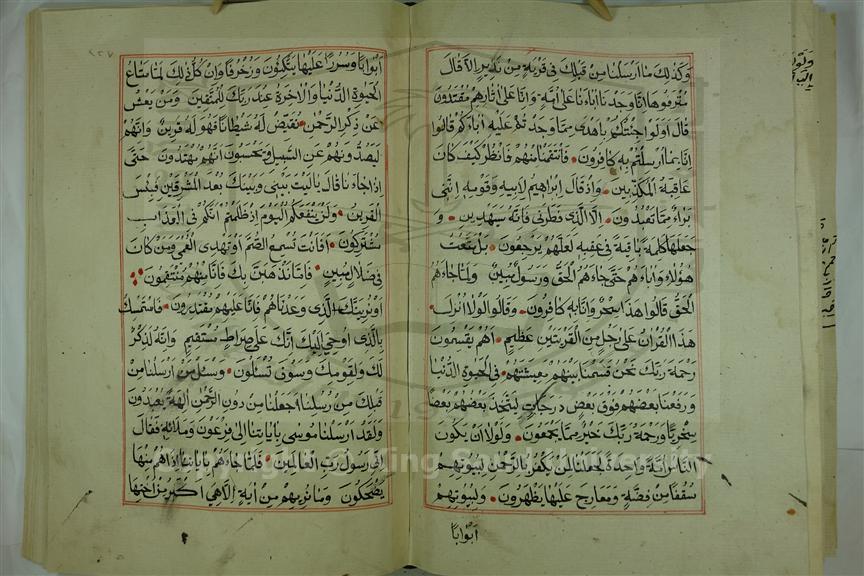 وكذلك ما ارسلنا من قبلك في قرية من نذير الا قال
مترفوها انا وجدنا اباءنا على امة وانا على اثارهم مقتدون
قال اولو جئتكم باهدى مما وجدتم عليه اباءكم قالوا
انا بما ارسلتم به كافرون فانتقمنا منهم فانظر كيف كان
عاقبة المكذبين واذ قال ابراهيم لابيه وقومه انني
براء مما تعبدون الا الذي فطرني فانه سيهدين و
جعلها كلمة باقية في عقبه لعلهم يرجعون بل متعت
هؤلاء واباءهم حتى جاءهم الحق ورسول مبين ولما جاءهم
الحق قالوا هذا سحر وانا به كافرون وقالوا لولا نزل
هذا القران على رجل من القريتين عظيم اهم يقسمون
رحمة ربك نحن قسمنا بينهم معيشتهم في الحيوة الدنيا
ورفعنا بعضهم فوق بعض درجات ليتخذ بعضهم بعضا
سخريا ورحمة ربك خير مما يجمعون ولولا ان يكون
الناس امة واحدة لجعلنا لمن يكفر بالرحمن لبيوتهم
سقفا من فضة ومعارج عليها يظهرون ولبيوتهم
ابوابا
ابوابا وسررا عليها يتكئون وزخرفا وان كل ذلك لما متاع
الحيوة الدنيا والاخرة عند ربك للمتقين ومن يعش
عن ذكر الرحمن نقيض له شيطانا فهو له قرين وانهم
ليصدونهم عن السبيل ويحسبون انهم مهتدون حتى
اذا جاءنا قال ياليت بيني وبينك بعد المشرقين فبئس
القرين ولن ينفعكم اليوم اذ ظلمتم انكم في العذاب
مشتركون افانت تسمع الصم او تهدي العمي ومن كان
في ضلال مبين فاما نذهبن بك فانا منهم منتقمون
او نرينك الذي وعدناهم فانا عليهم مقتدرون فاستمسك
بالذي اوحي اليك انك على صراط مستقيم وانه لذكر
لك ولقومك وسوف تسئلون وسئل من ارسلنا من
قبلك من رسلنا اجعلنا من دون الرحمن الهة يعبدون
ولقد ارسلنا موسى باياتنا الى فرعون وملائه فقال
اني رسول رب العالمين فلما جاءهم باياتنا اذا هم منها
يضحكون وما نريهم من اية الا هي اكبر من اختها